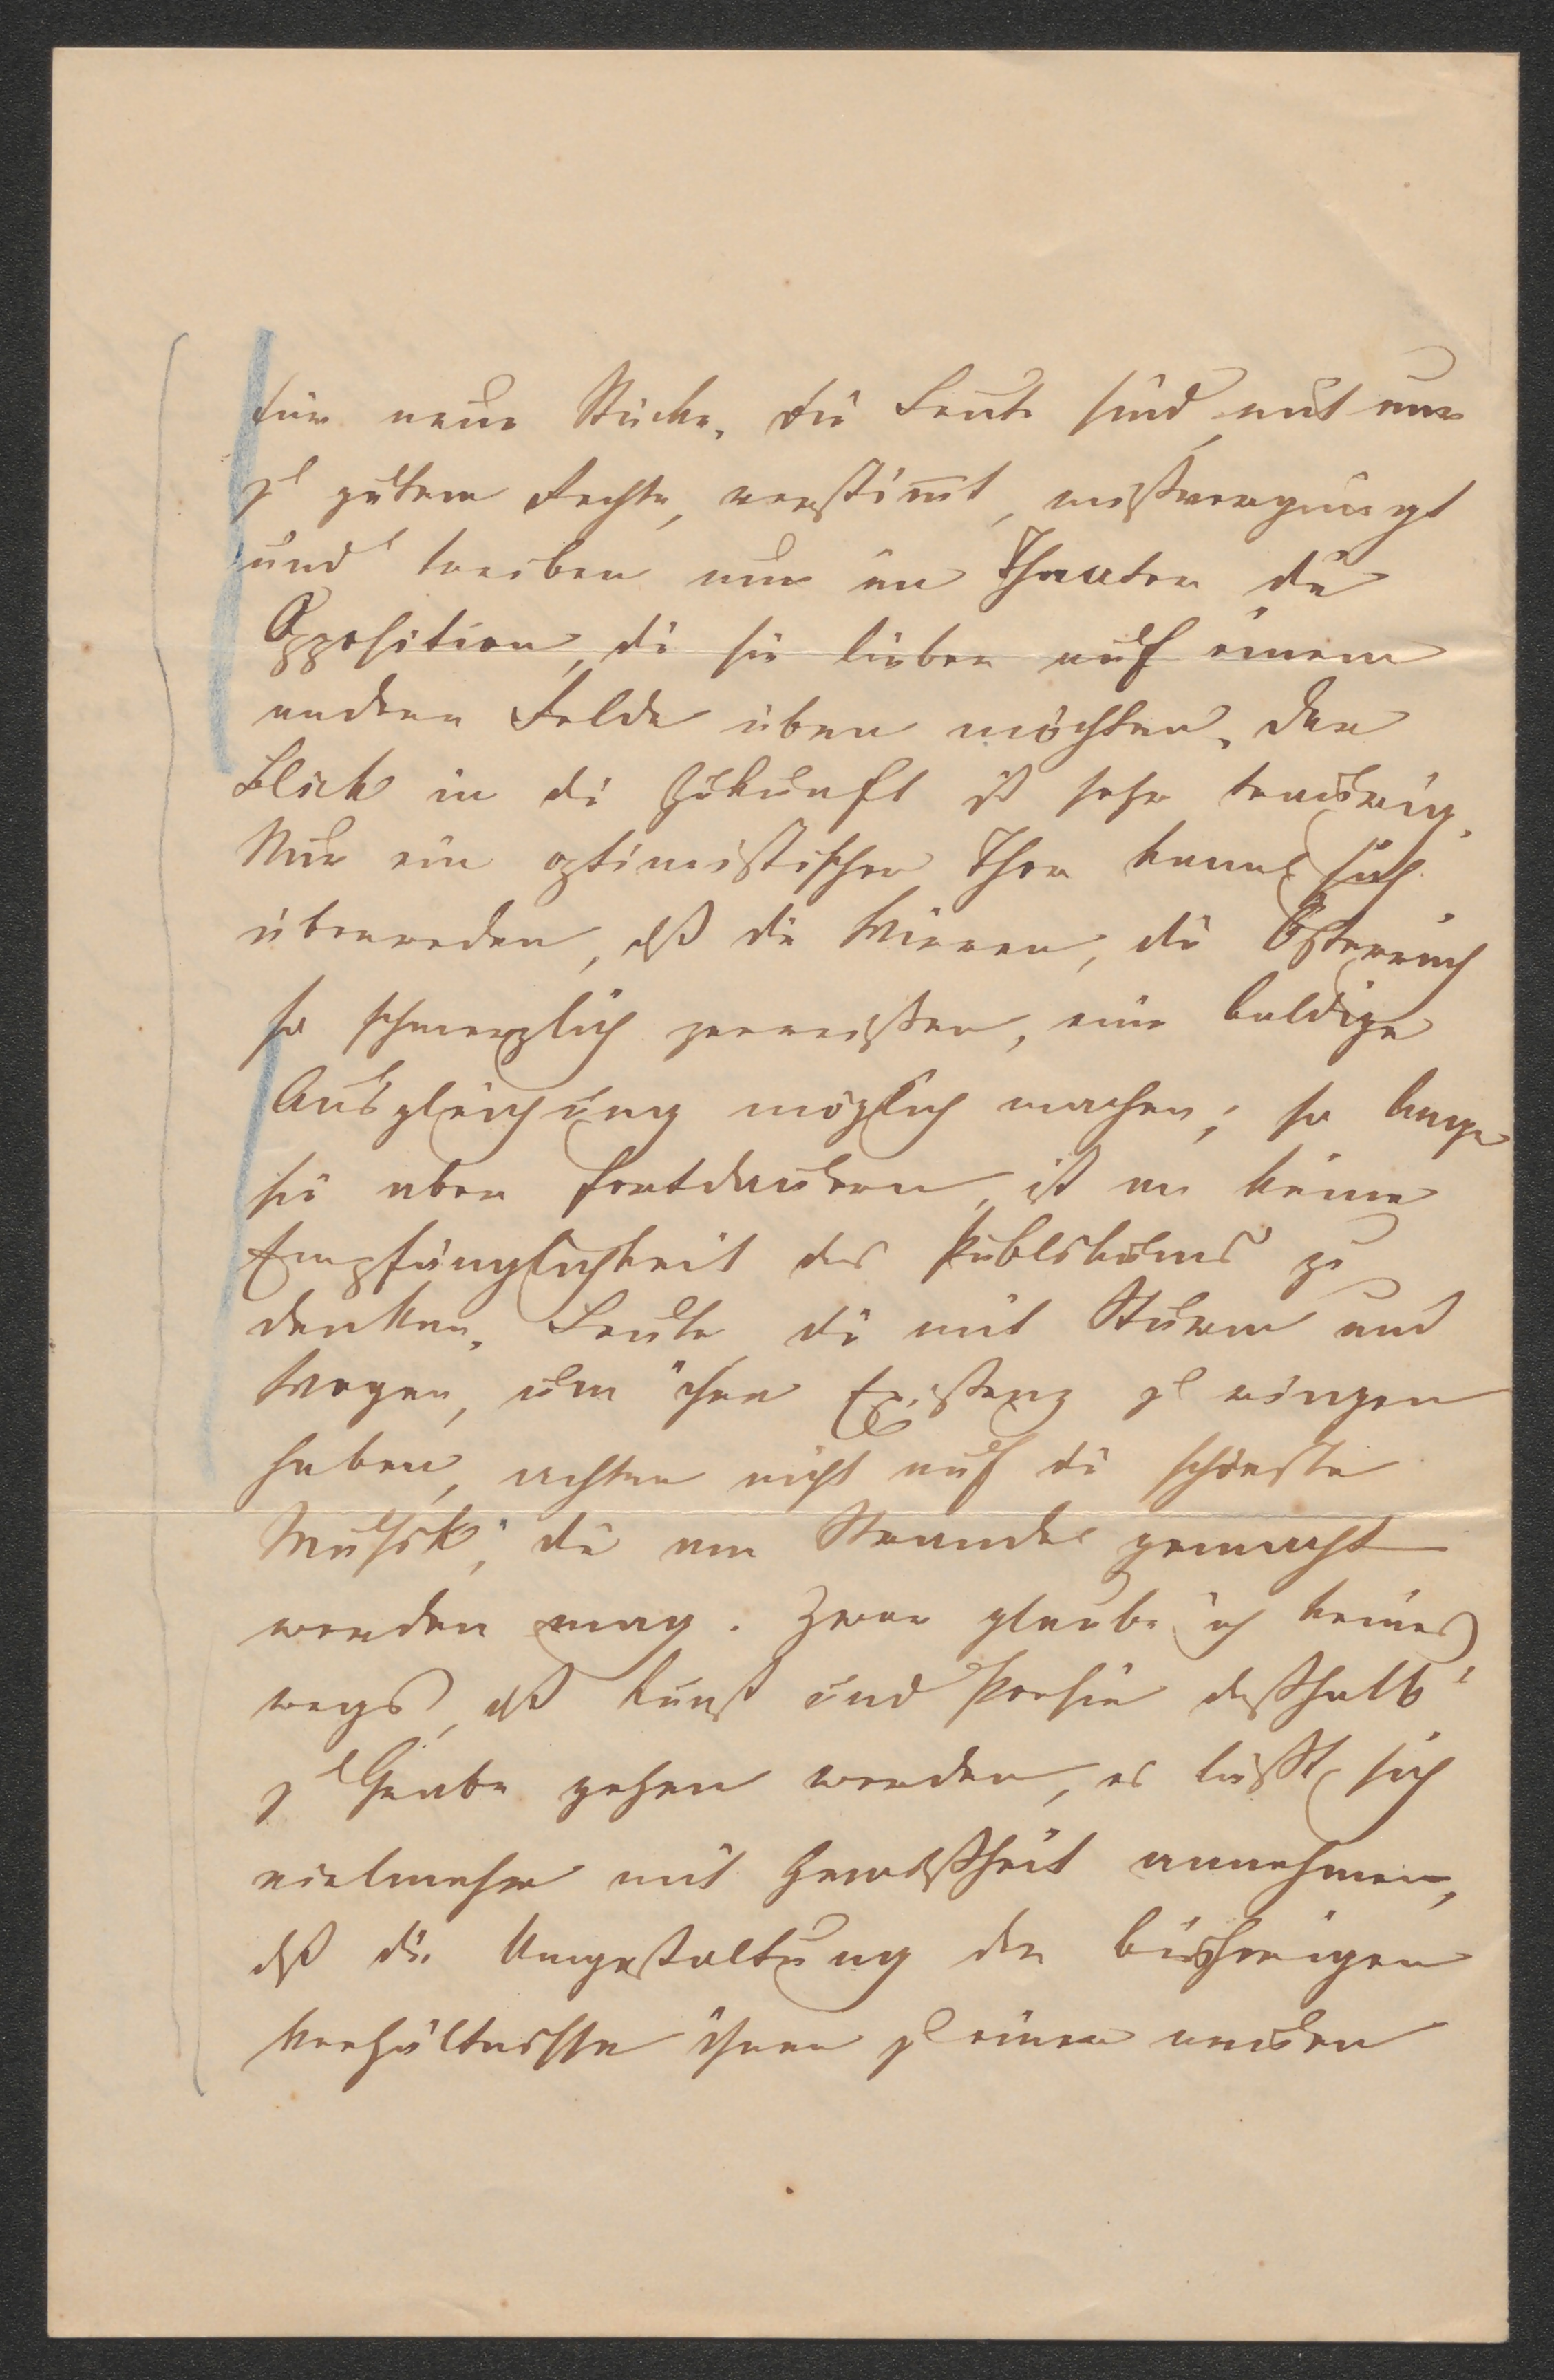 für neue Stücke. Die Leute sind, mit nur
zu gutem Rechte, verstimt, mißvergnügt
und treiben nun im Theater die
Opposition, die sie lieber auf einem
andren Felde üben möchten. Der
Blick in die Zukunft ist sehr traurig.
Nur ein optimistischer Thor kann sich
überreden, dß die Wirren, die Österreich
so schmerzlich zerreißen, eine baldige
Ausgleichung möglich machen; so lange
sie aber fortdauern, ist an keine
Empfänglichkeit des Publikums zu
denken. Leute, die mit Sturm und
Wogen, um ihre Existenz zu ringen
haben, achten nicht auf die schönste
Musik, die am Strande gemacht
werden mag. Zwar glaube ich keines
wegs, dß Kunst und Poesie deßhalb
zu Grabe gehen werden, es läßt sich
vielmehr mit Gewißheit annehmen,
dß die Umgestaltung der bisherigen
Verhältnisse ihnen zu einer neuen